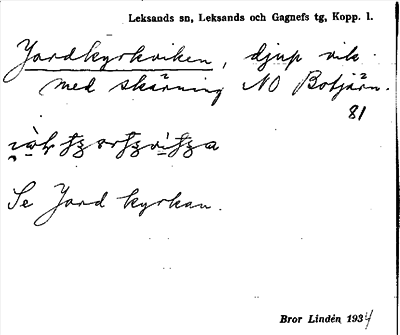 Leksands sn, Leksands och Gagnefs tg, Kopp. l.
Jordkyrkviken, djup vik
med skärning NO Botjärn.
81
Se Jord kyrkan.
Bror Lindén 1934